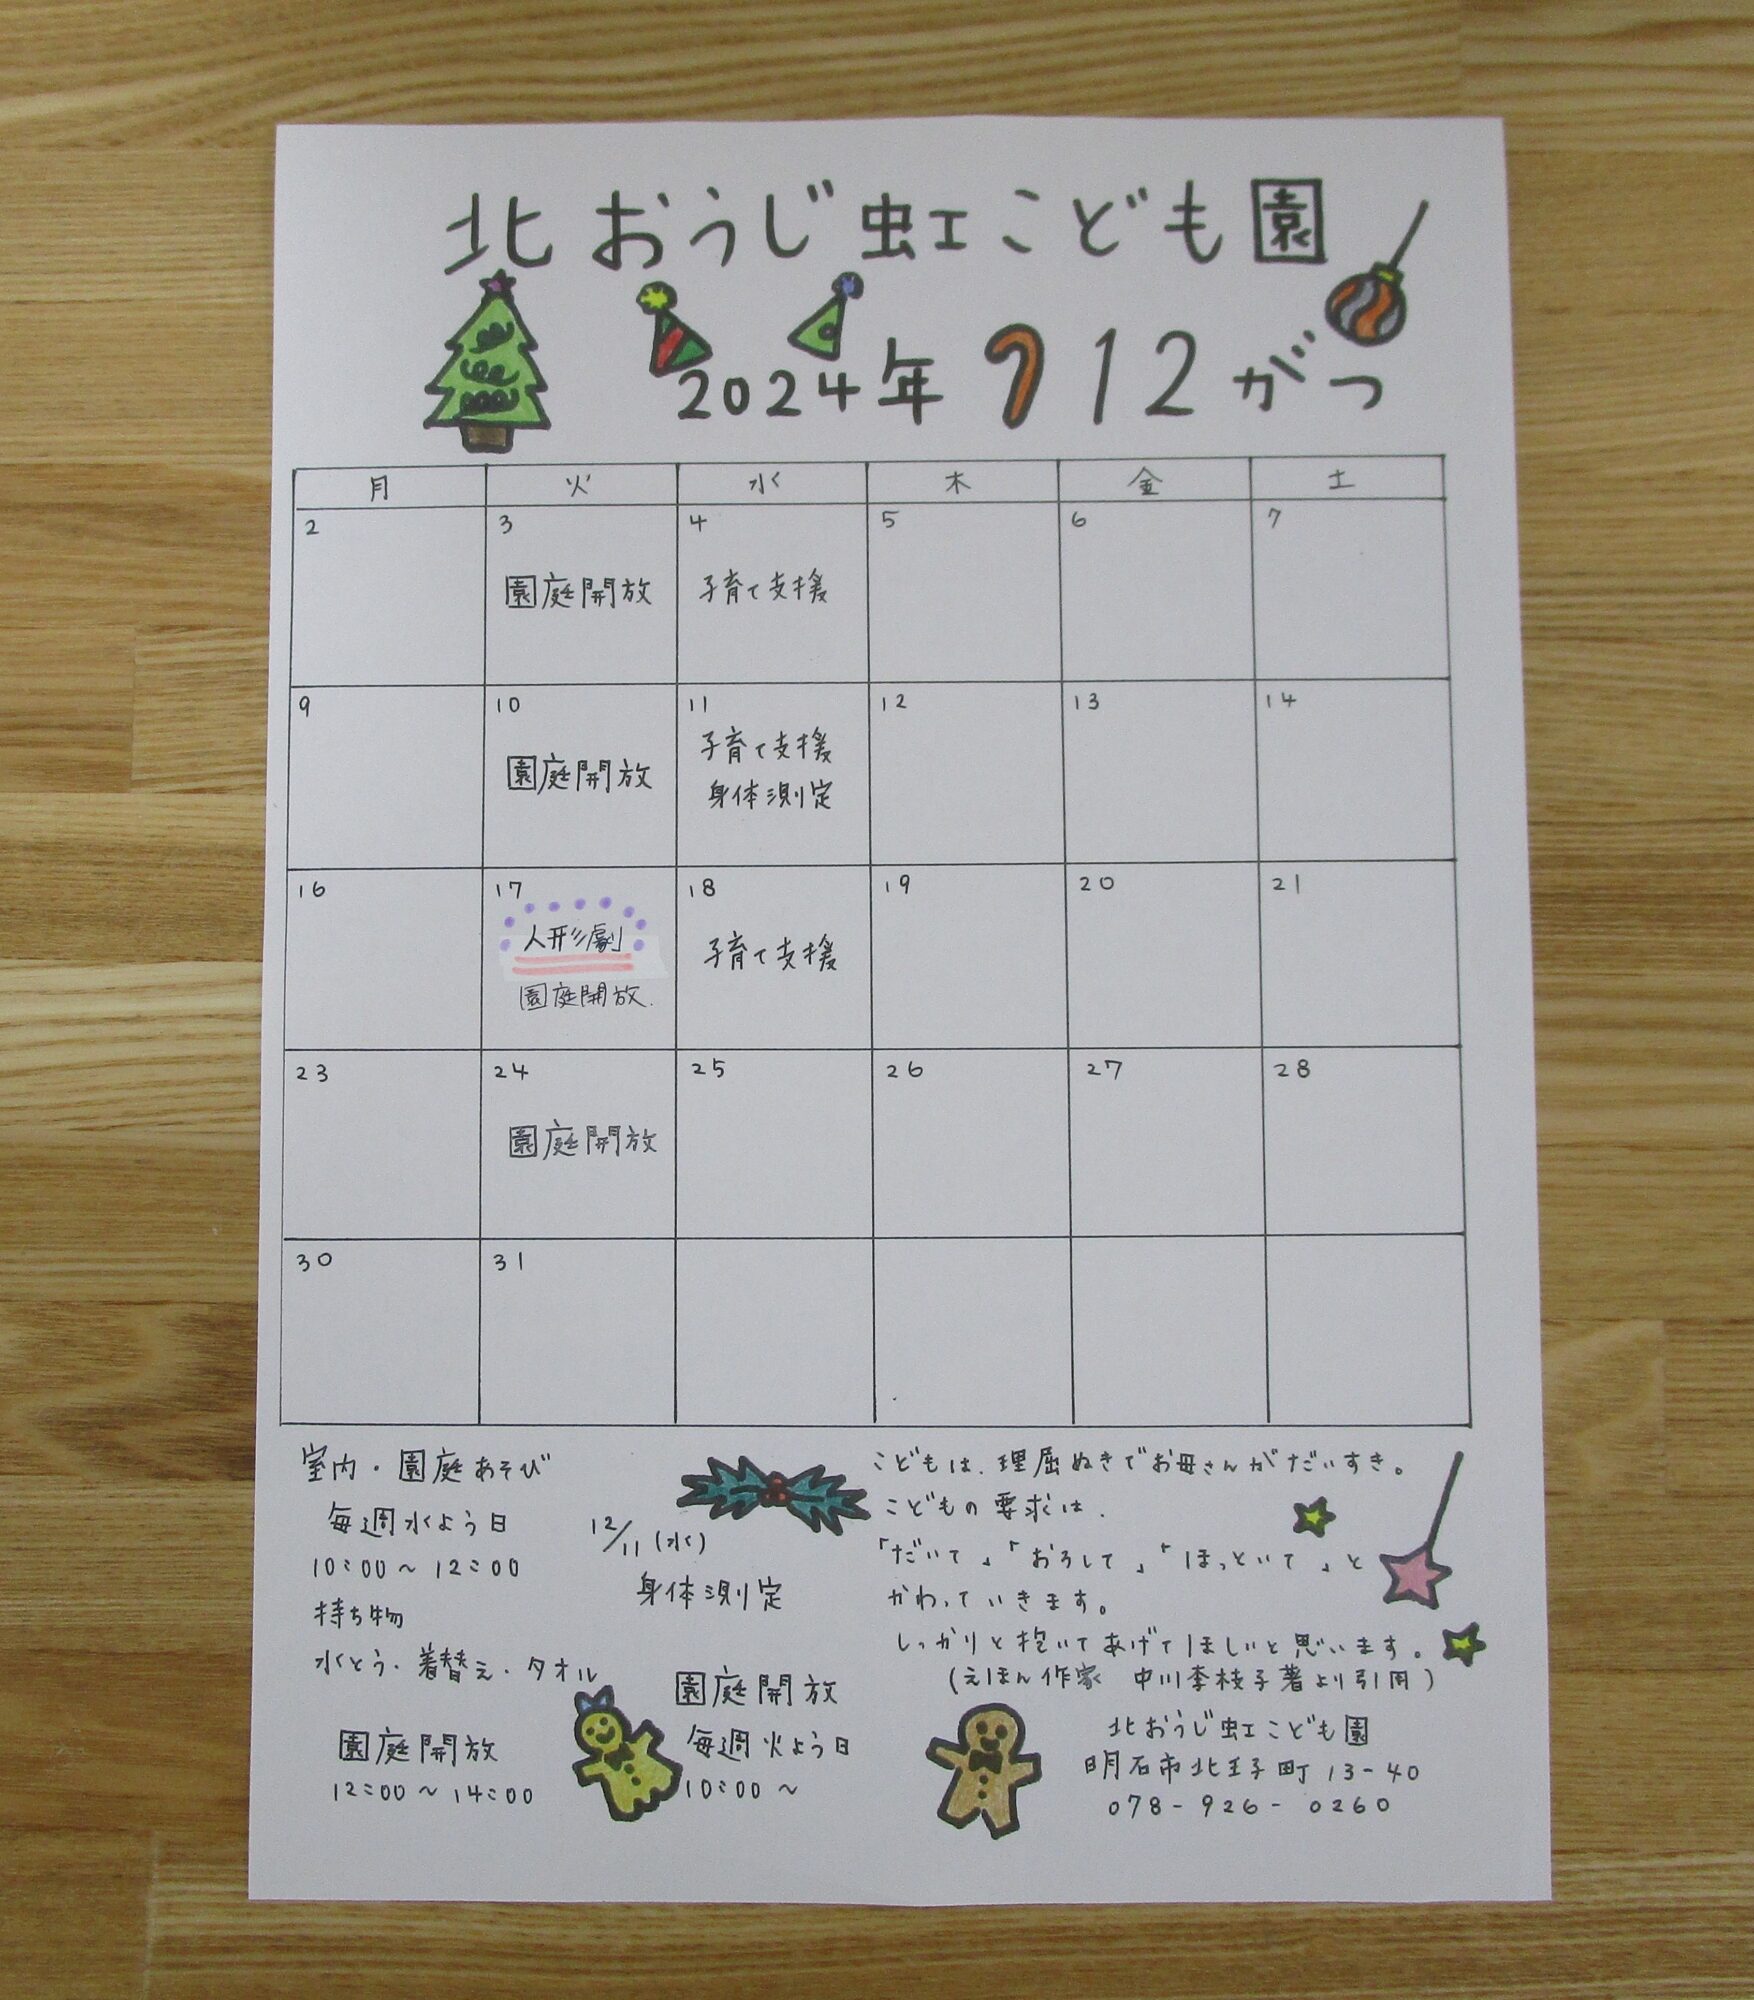 北おうじ虹こども園
2024年 12がつ
月 火 水 木 金 土
2 3 4 5 6 7
園庭開放 子育て支援
9 10 11 12 13 14
園庭開放 子育て支援
身体測定
16 17 18 19 20 21
人形劇 子育て支援
園庭開放.
23 24 25 26 27 28
園庭開放
30 31
室内・園庭あそび
毎週水よう日
10:00~12:00
持ち物
水とう・着替え・タオル
園庭開放
12:00~14:00
12/11(水)
身体測定
園庭開放
毎週火よう日
10:00~
こどもは、理屈ぬきでお母さんがだいすき。
こどもの要求は、
「だいて」「おろして」「ほっといて」と
かわっていきます。
しっかりと抱いてあげてほしいと思います。
(えほん作家 中川李枝子著より引用)
北おうじ虹こども園
明石市北王子町13-40
078-926-0260